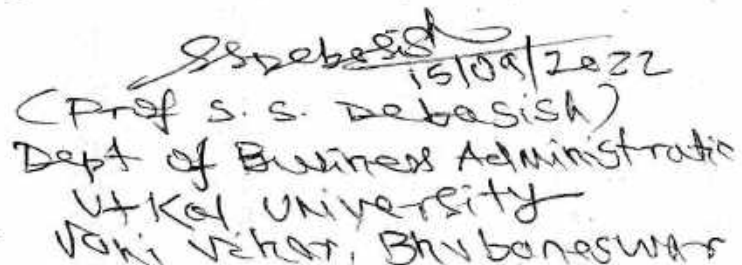 SSDebasish
15/09/2022
(Prof S. S. Debasish)
Dept of Business Administratio
Utkal University
Vani Vihar, Bhubaneswar